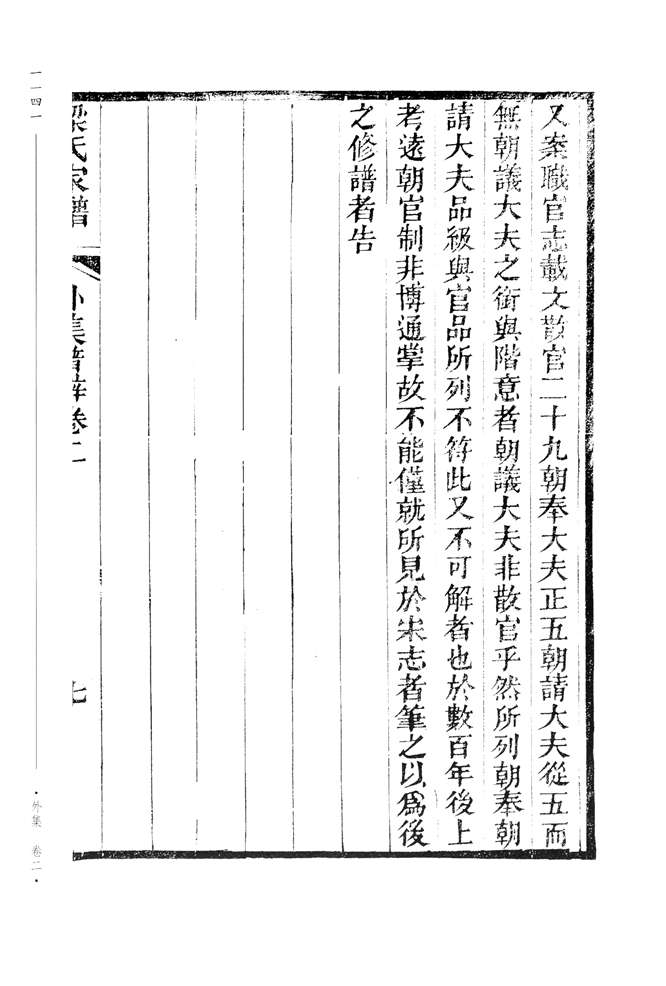 又案職官志載文散官二十九朝奉大夫正五朝請大夫從五而
無朝議大夫之銜與階意者朝議大夫非散官乎然所列朝奉朝
請大夫品級與官品所列不符此又不可解者也於數百年後上
考遠朝官制非博通掌故不能僅就所見於宋志者筆之以爲後
之修譜者告
梁氏家譜
外集譜辨卷二
七
一一四一
·外集 卷二·